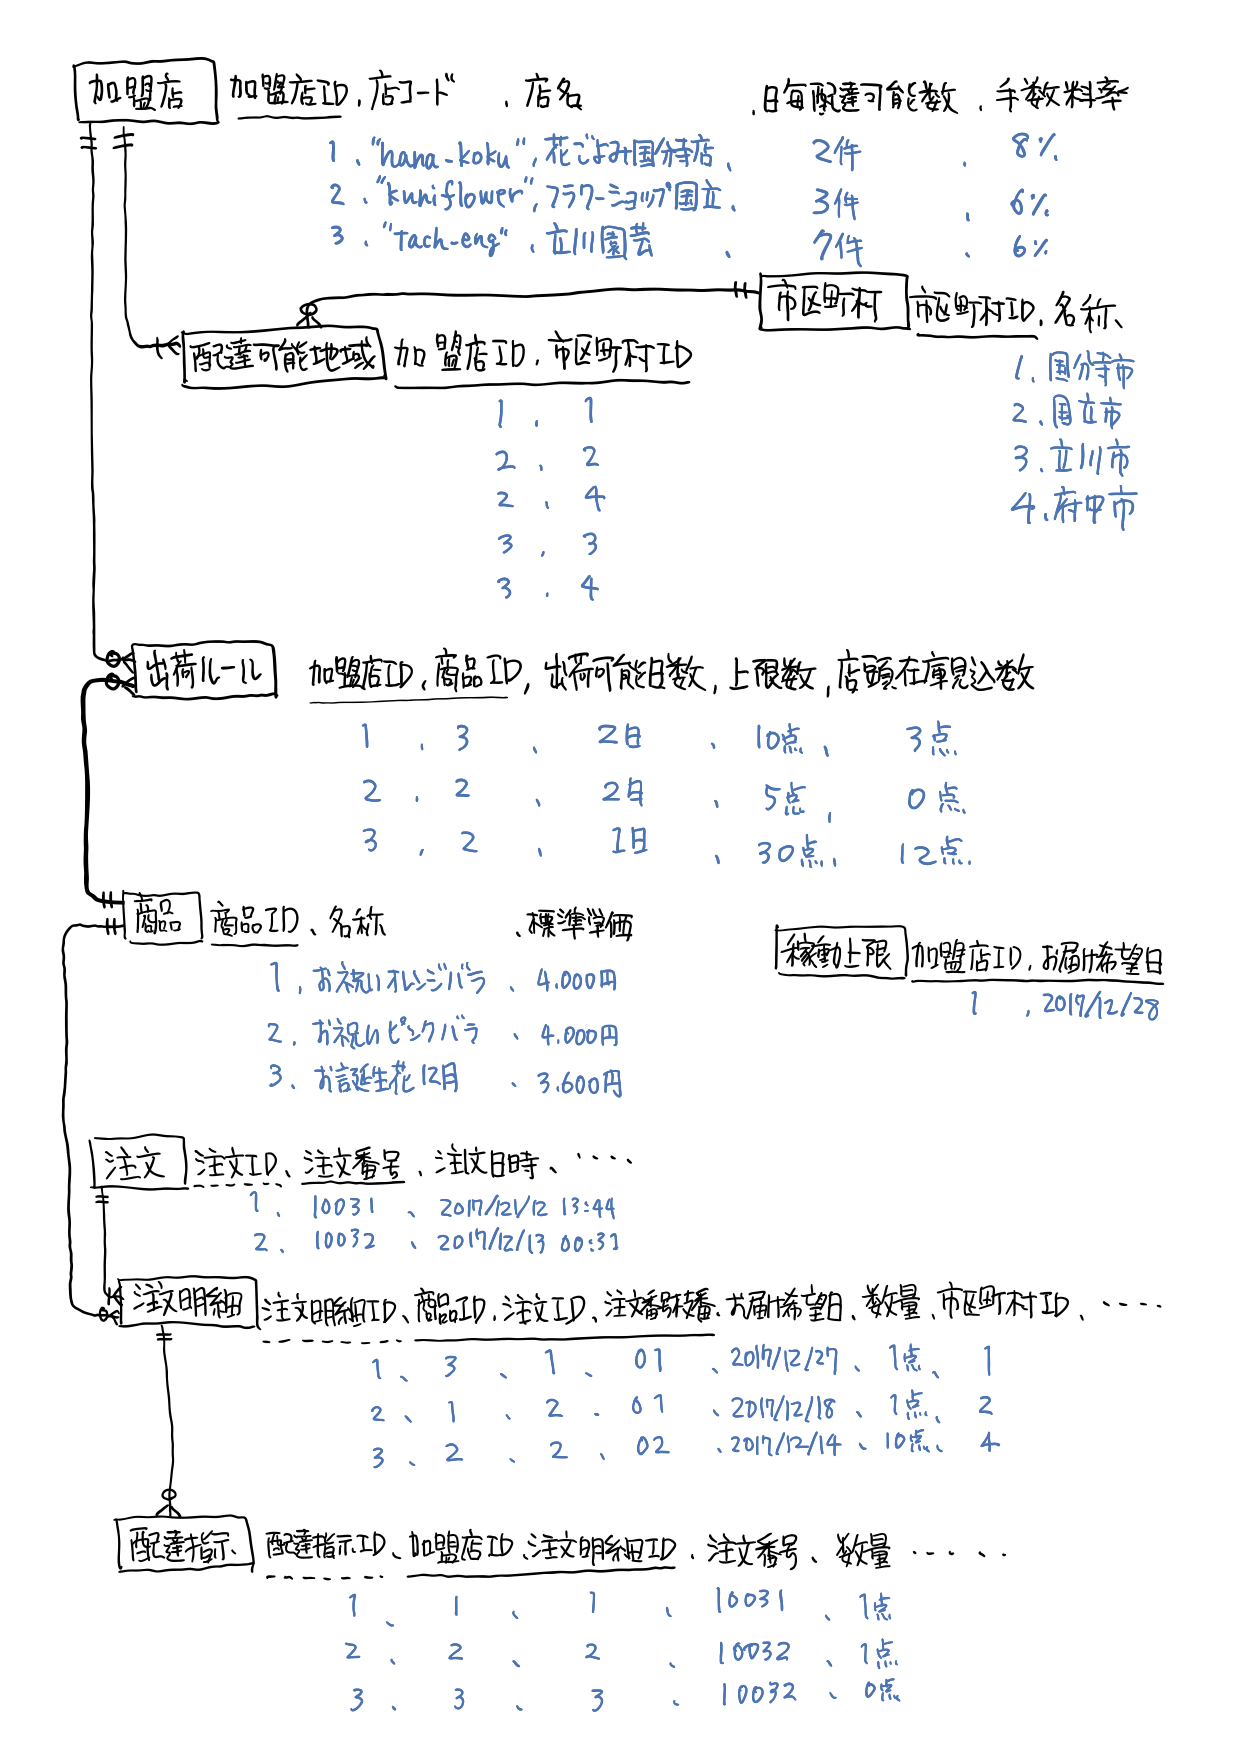 加盟店 加盟店ID、店コード 、店名 、日毎配達可能数 、手数料率
1、"hana-koku"、花ごよみ国分寺店、 2件 、 8%
2、"kuniflower"、フラワーショップ国立、 3件 、 6%
3、"tach-eng"、立川園芸 、 7件 、 6%
市区町村 市区町村ID、名称、
配達可能地域 加盟店ID、市区町村ID
1、国分寺市
2、国立市
3、立川市
4、府中市
1 、 1
2 、 2
2 、 4
3 、 3
3 、 4
出荷ルール 加盟店ID、商品ID、出荷可能日数、上限数、店頭在庫見込数
1 、 3 、 2日 、 10点、 3点
2 、 2 、 2日 、 5点、 0点
3 、 2 、 1日 、 30点、 12点
商品 商品ID、名称 、標準単価
1、お祝いオレンジバラ 、4.000円
2、お祝いピンクバラ 、4.000円
3、お誕生花12月 、3.600円
稼動上限 加盟店ID、お届け希望日
1 、2017/12/28
注文 注文ID、注文番号、注文日時、‥‥
1、 10031 、 2017/12/12 13:44
2、 10032 、 2017/12/13 00:31
注文明細 注文明細ID、商品ID、注文ID、注文番号枝番、お届け希望日、数量、市区町村ID、‥‥
1、 3 、 1 、 01 、2017/12/27、 1点、 1
2、 1 、 2 、 01 、2017/12/18、 1点、 2
3、 2 、 2 、 02 、2017/12/14、10点、 4
配達指示 配達指示ID、加盟店ID、注文明細ID、注文番号、数量 ‥‥
1 、 1 、 1 、 10031 、 1点
2 、 2 、 2 、 10032 、 1点
3 、 3 、 3 、 10032 、 0点